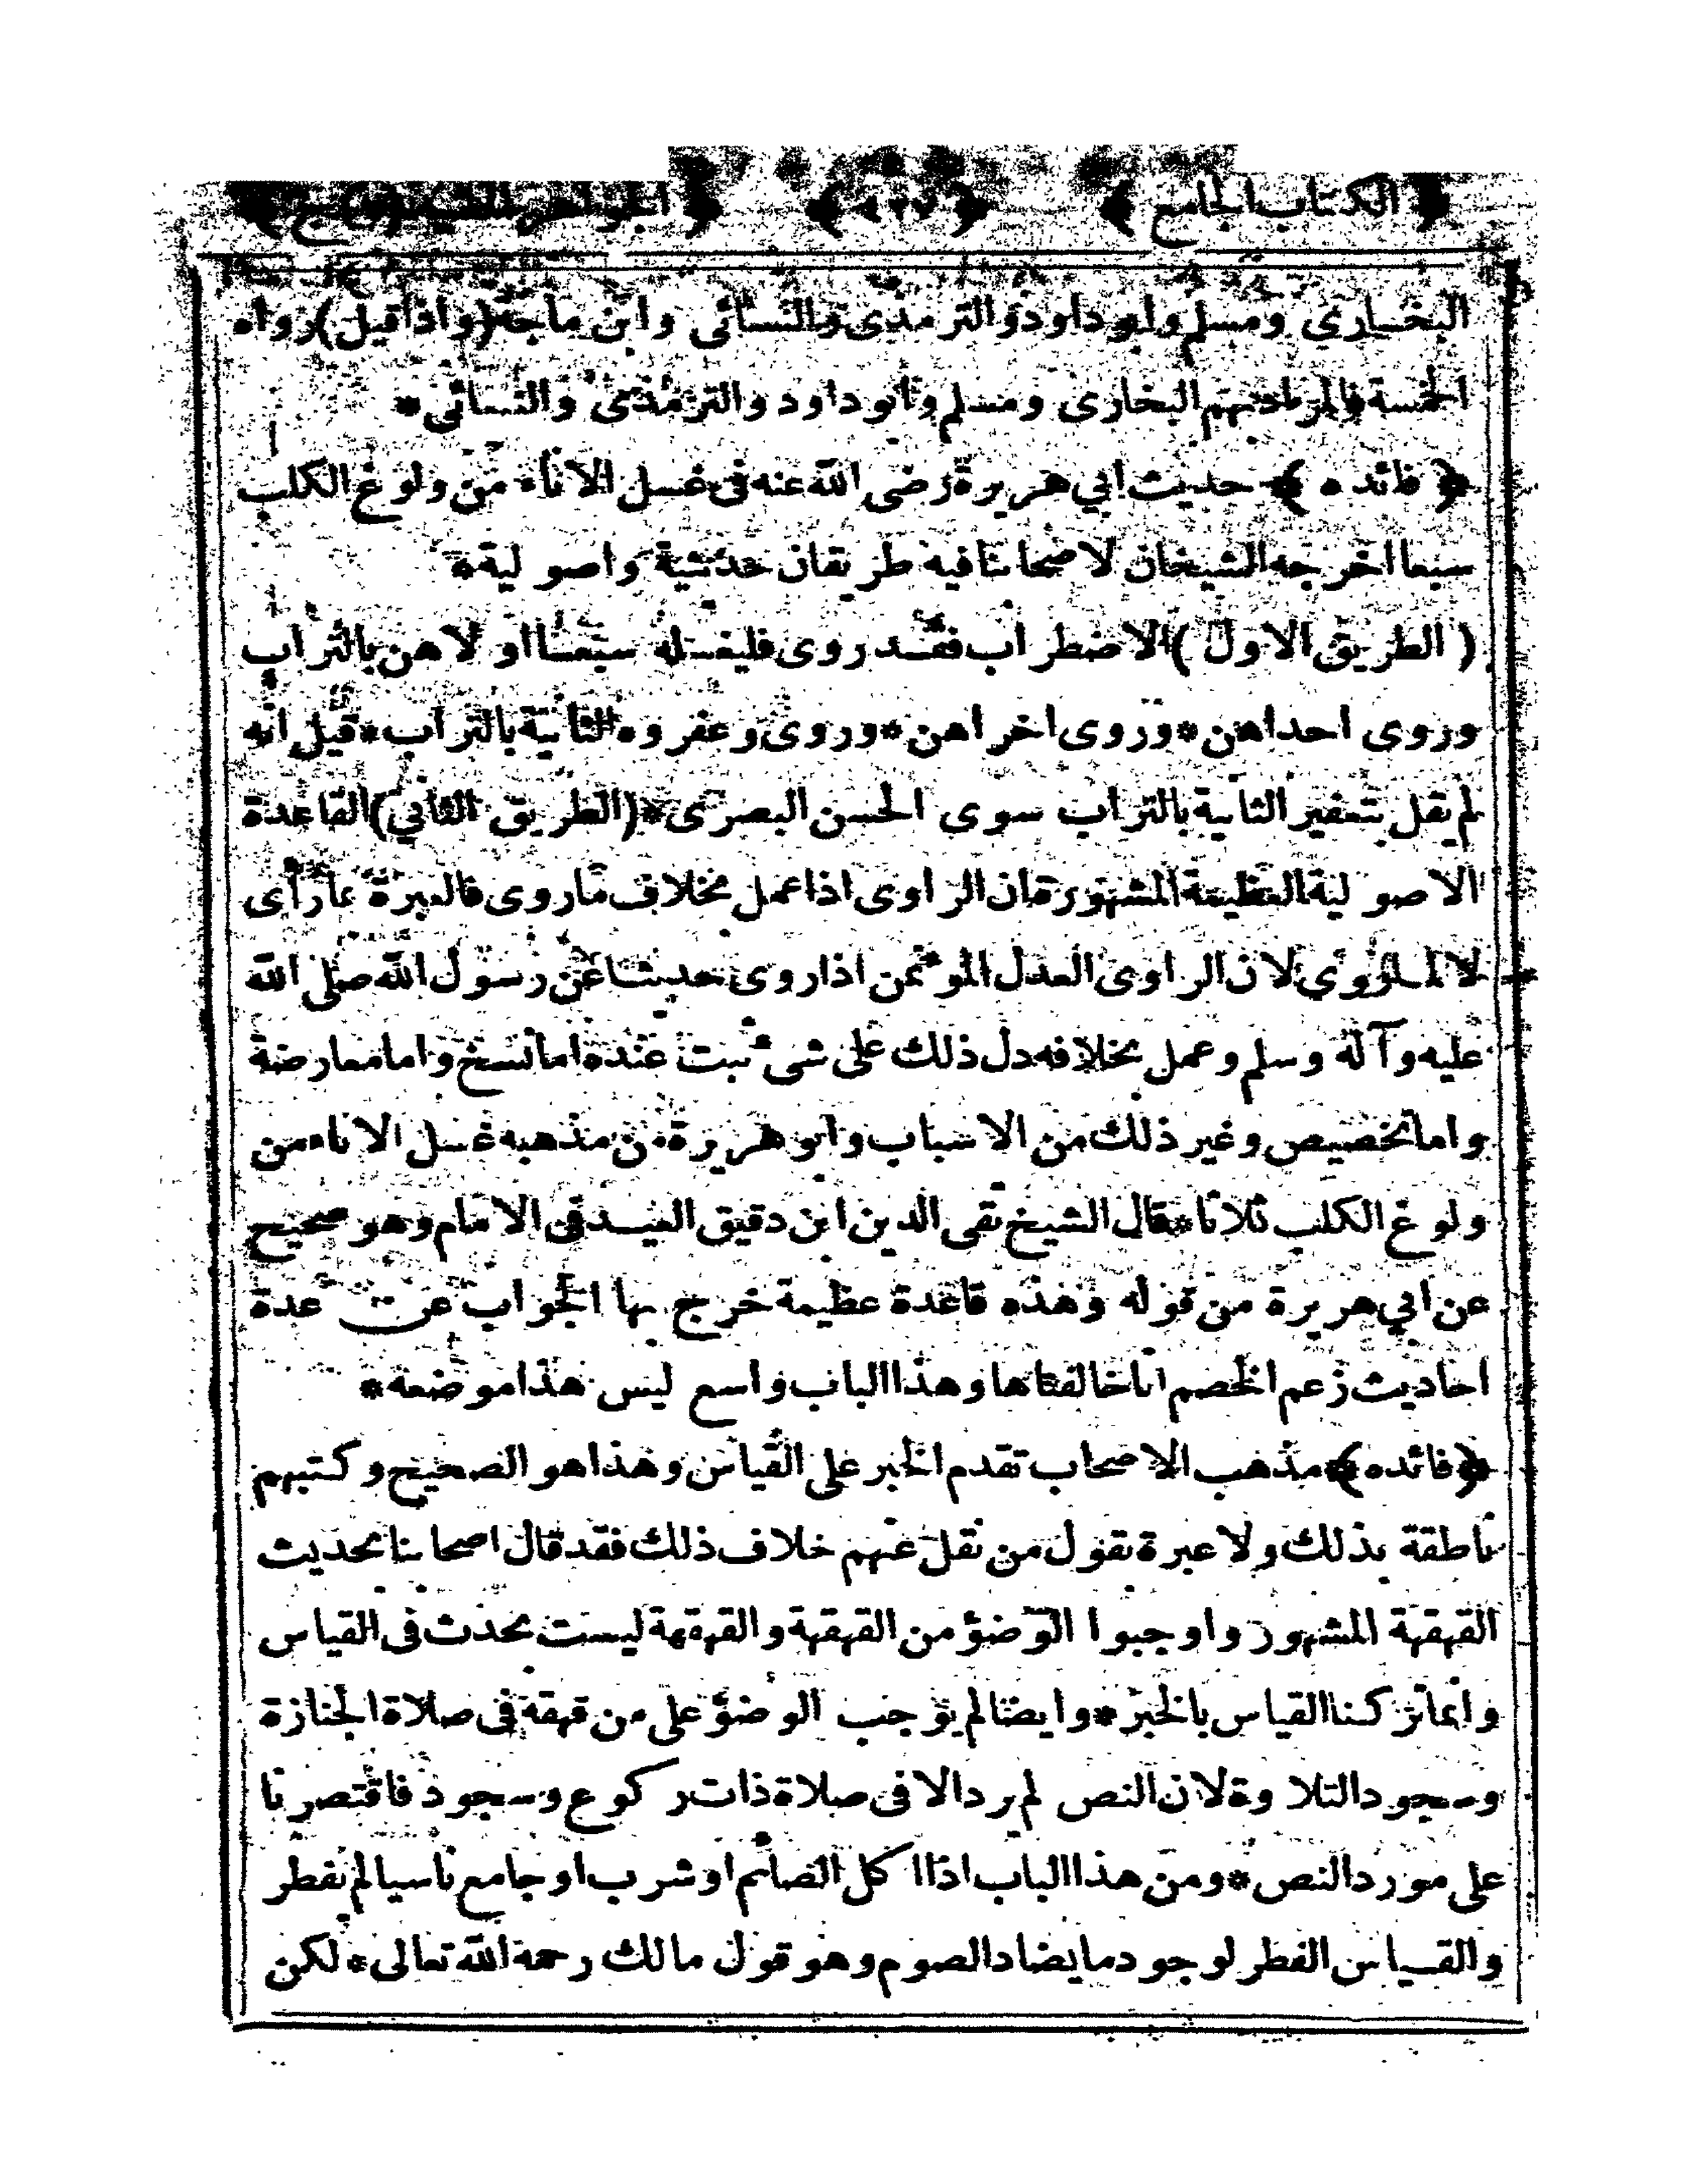 ﴿ الكتاب الجامع ﴾ ﴿ ﴾ ﴿ الجواهر ﴾
البخـارى ومسلم وابو داود والترمذى والنسائى وابن ماجة (واذا قيل) رواه
الخمسة فالمراد بهم البخارى ومسلم وأبو داود والترمذى والنسائى *
﴿ فائده ﴾ حديث ابي هريرة رضى الله عنه فى غسل الاناء من ولوغ الكلب
سبعا اخرجه الشيخان لاصحابنا فيه طريقان حدثية واصولية *
( الطريق الاول ) الاضطراب فقـد روى فليغسله سبعـا اولاهن بالتراب
وروى احداهن * وروى اخراهن * وروى وعفروه الثانية بالتراب * قيل انه
لم يقل بتعفير الثانية بالتراب سوى الحسن البصرى * (الطريق الثاني) القاعدة
الاصولية العظيمة المشهورة ان الراوى اذا عمل بخلاف ماروى فالعبرة عارأى
لا لمـاروي لان الراوى العدل المؤتمن اذا روى حديثـا عن رسول الله صلى الله
عليه وآله وسلم وعمل بخلافه دل ذلك على شىء ثبت عنده امانسخ واما معارضة
واما تخصيص وغير ذلك من الاسباب وابو هريرة من مذهبه غسل الاناء من
ولوغ الكلب ثلاثا * قال الشيخ تقى الدين ابن دقيق العيـد فى الامام وهو صحيح
عن ابي هريرة من قوله وهذه قاعدة عظيمة خرج بها الجواب عن عدة
احاديث زعم الخصم انا خالفناها وهذا الباب واسع ليس هذا موضعه *
﴿ فائده ﴾ مذهب الاصحاب تقدم الخبر على القياس وهذا هو الصحيح وكتبهم
ناطقة بذلك ولا عبرة بقول من نقل عنهم خلاف ذلك فقد قال اصحابنا بحديث
القهقهة المشهور واوجبوا الوضؤ من القهقهة والقهقهة ليست بحدث فى القياس
وانما تركنا القياس بالخبر * وايضا لم يوجب الوضؤ على من قهقه فى صلاة الجنازة
وسجود التلاوة لان النص لم يرد الا فى صلاة ذات ركوع وسجود فاقتصرنا
على مورد النص * ومن هذا الباب اذا اكل الصائم او شرب او جامع ناسيا لم يفطر
والقـياس الفطر لوجود ما يضاد الصوم وهو قول مالك رحمة الله تعالى * لكن